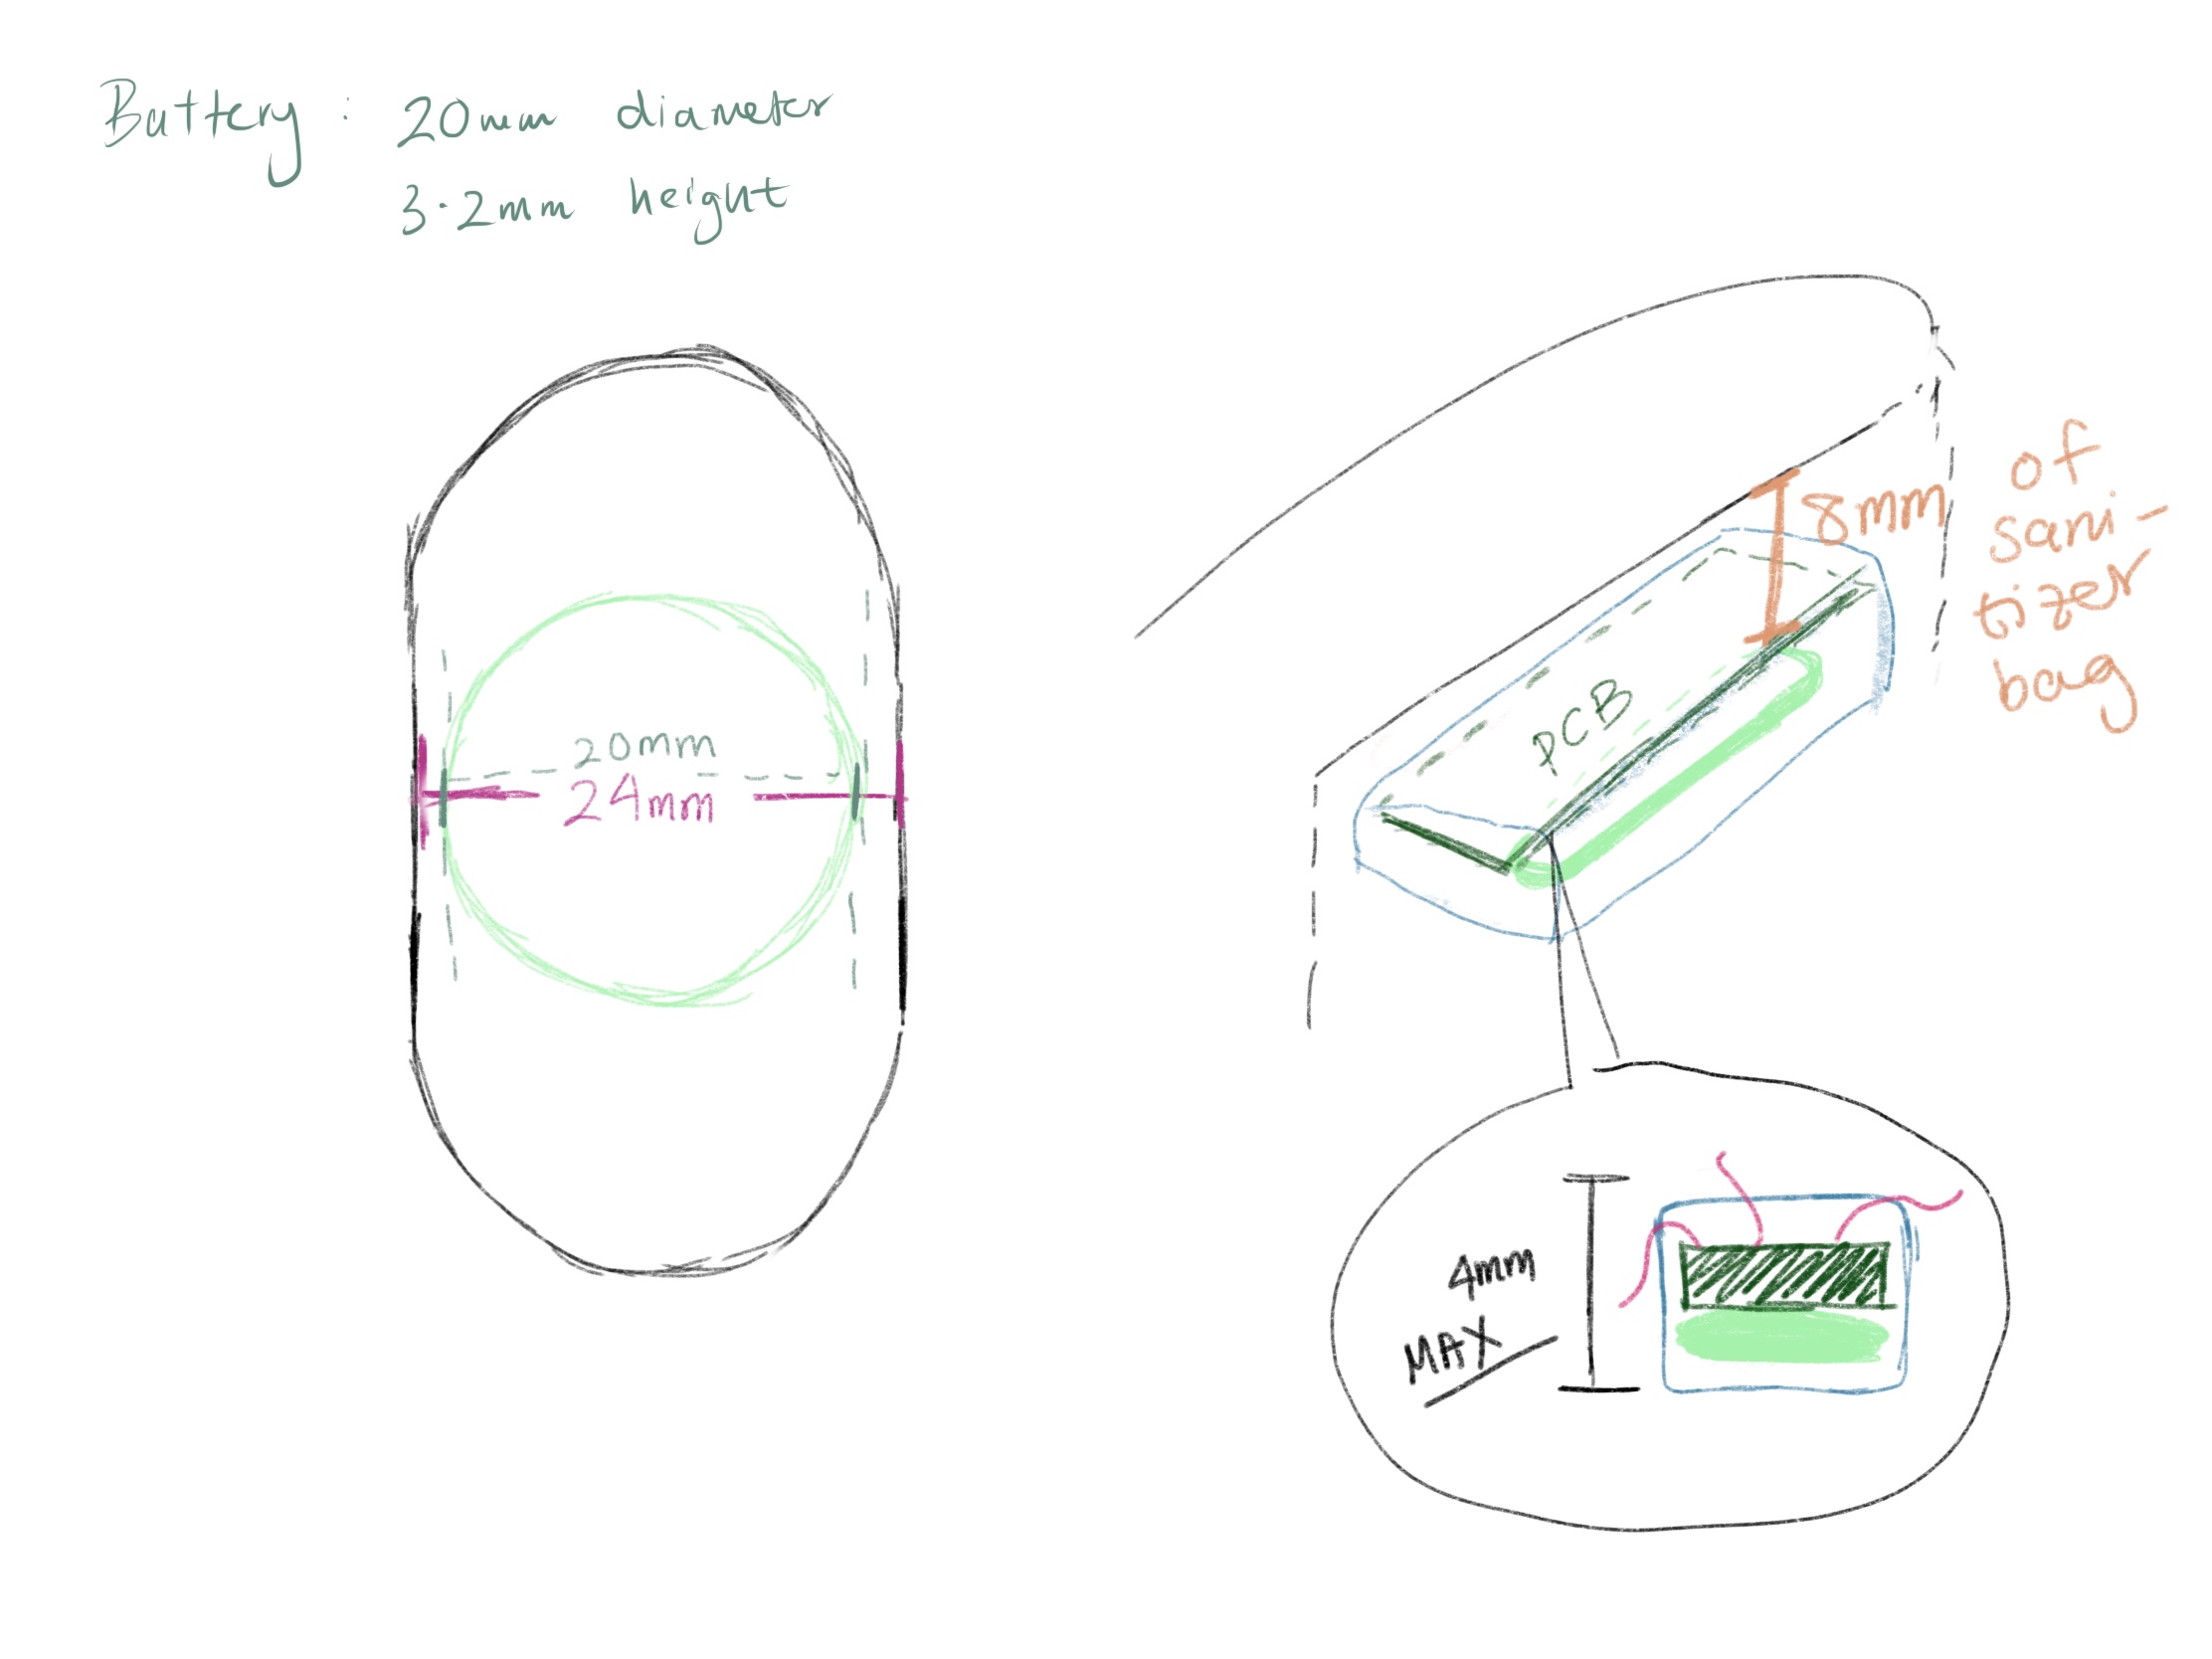 Battery : 20mm diameter
3.2mm height
20mm
24mm
PCB
8mm
of
sani-
tizer
bag
4mm
MAX